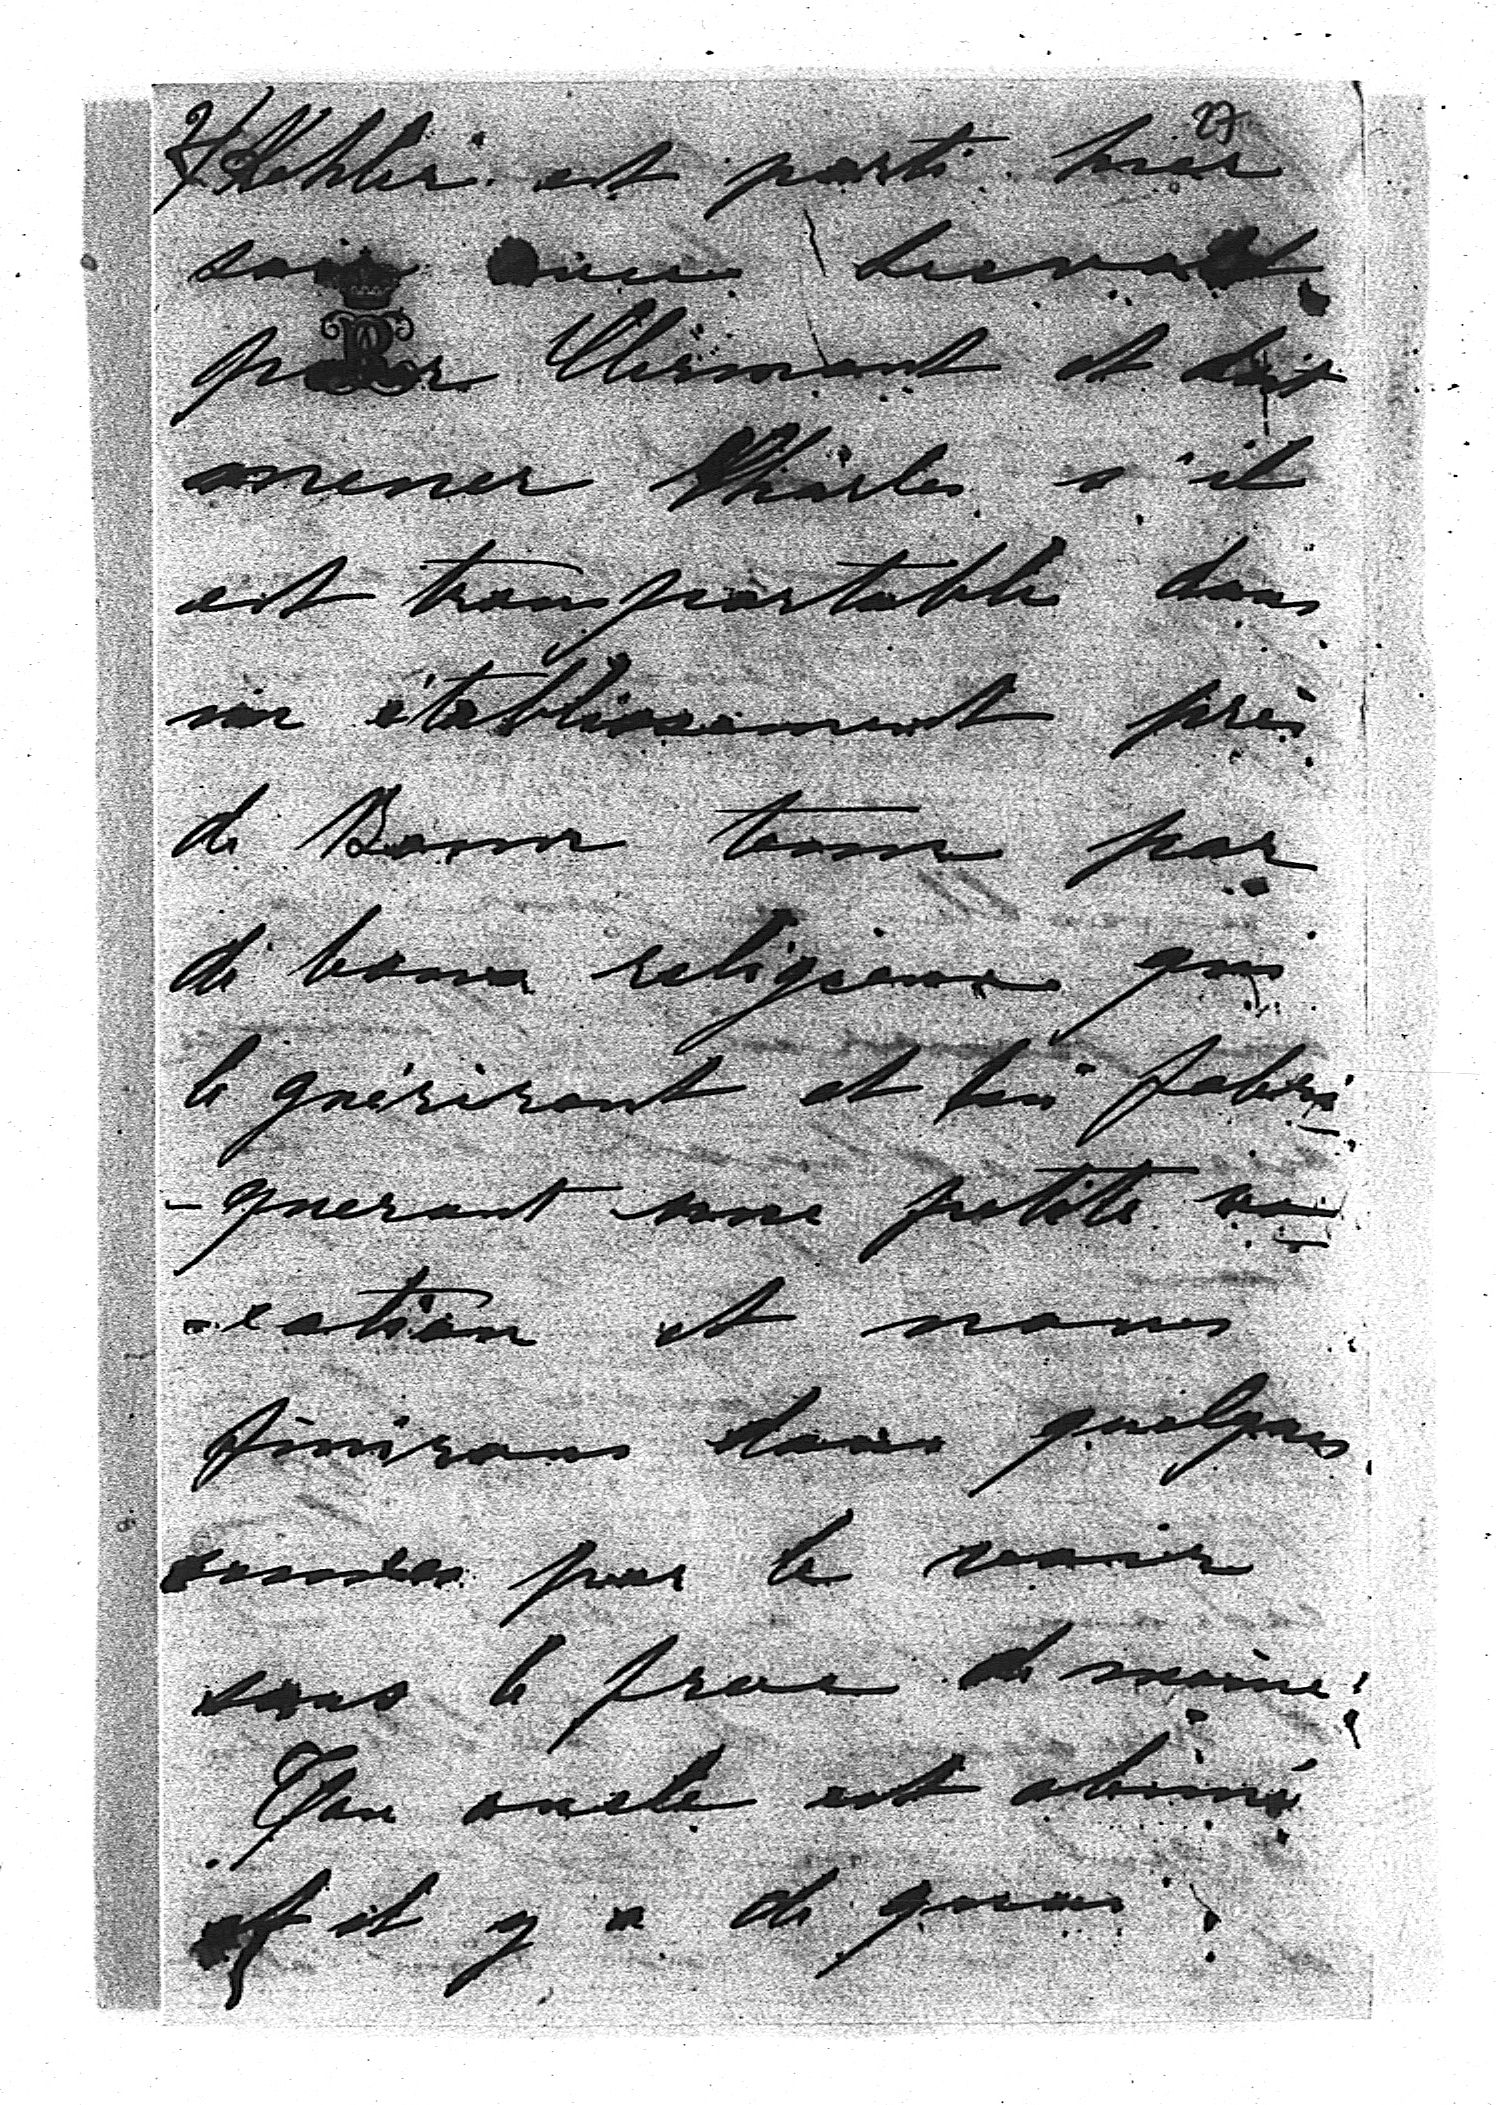 27
Kehler est parti hier
soir avec Lieuvald
pour Clermont et doit
amener Charles s'il
est transportable dans
un établissement près
de Bonn tenu par
de bons religieux qui
le guériront et lui fabri
-queront une petite vo
-cation et nous
finirons dans quelques
années par le revoir
sous le froc de moine!
Ton oncle est abimé
et il y a de quoi